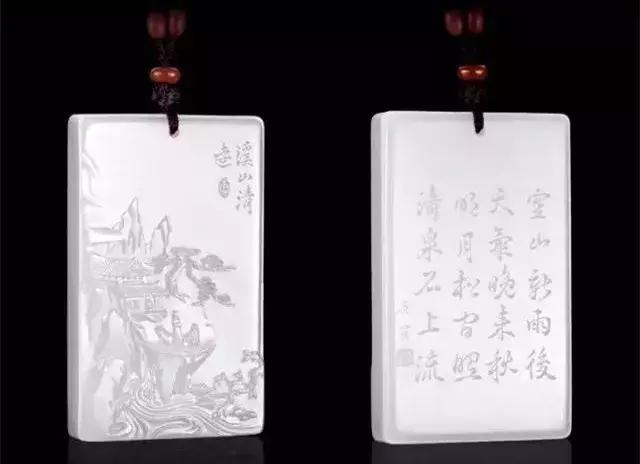 溪山清
遠
空山新雨後
天氣晚來秋
明月松間照
清泉石上流